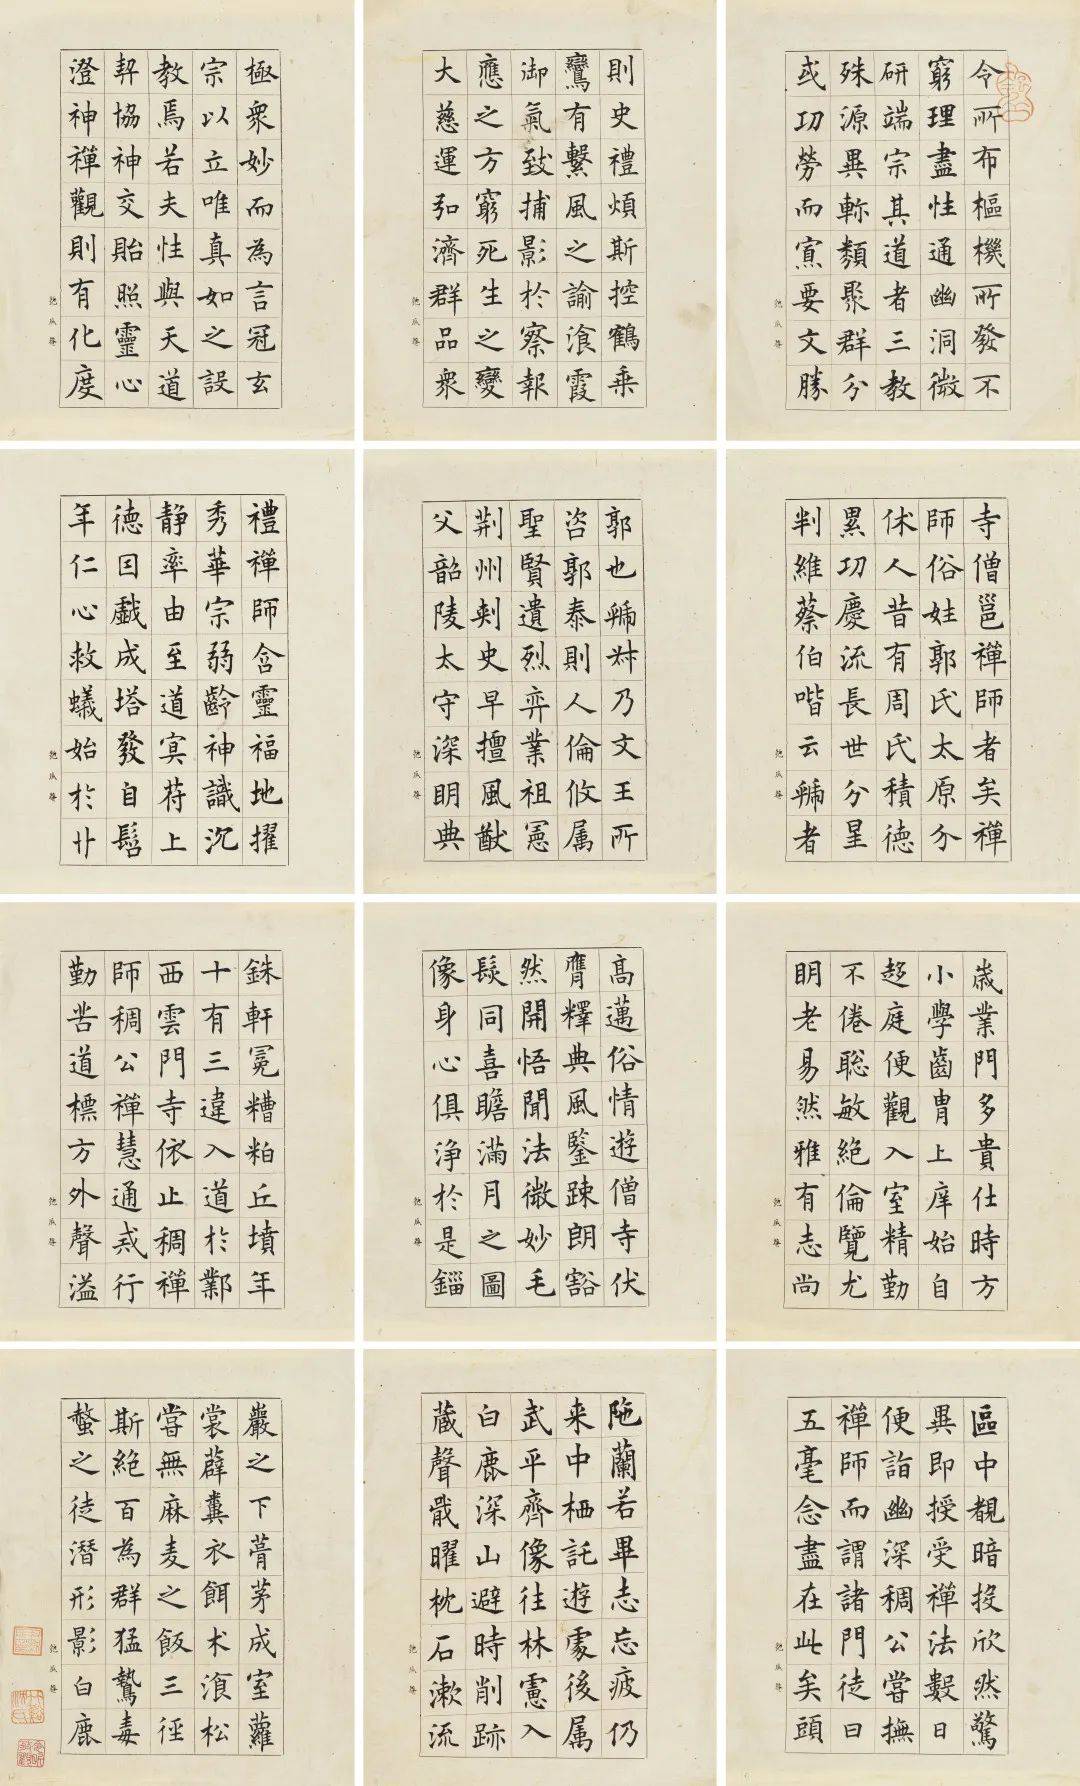 令所布樞機所發不
窮理盡性通幽洞微
研端宗其道者三教
殊源異軫類聚群分
或功勞而寡要文勝
則史禮煩斯控鶴乘
鸞有繫風之諭飡霞
御氣致捕影於察報
應之方窮死生之變
大慈運弘濟群品衆
極衆妙而為言冠玄
宗以立唯真如之設
教焉若夫性與天道
契協神交貽照靈心
澄神禪觀則有化度
寺僧邕禪師者矣禪
師俗姓郭氏太原介
休人昔有周氏積德
累功慶流長世分星
判維蔡伯喈云虢者
郭也虢叔乃文王所
咨郭泰則人倫攸属
聖賢遺烈弈業祖憲
荆州刾史早擅風猷
父韶陵太守深明典
禮禪師含靈福地擢
秀華宗弱齡神識沉
静率由至道冥苻上
德因戲成塔發自髫
年仁心救蟻始於廿
歲業門多貴仕時方
小學齒胄上庠始自
趍庭便觀入室精勤
不倦聡敏絶倫覽尤
明老易然雅有志尚
高邁俗情遊僧寺伏
膺釋典風鑒踈朗豁
然開悟聞法微妙毛
髮同喜瞻滿月之圖
像身心俱浄於是錙
銖軒冕糟粕丘墳年
十有三違入道於鄴
西雲門寺依止稠禪
師稠公禪慧通戒行
勤苦道標方外聲溢
區中覩暗投欣然驚
異即授受禪法數日
便詣幽深稠公嘗撫
禪師而謂諸門徒曰
五毫念盡在此矣頭
陁蘭若畢志忘疲仍
来中栖託遊處後属
武平齊像往林慮入
白鹿深山避時削跡
藏聲戢曜枕石漱流
巖之下葺茅成室蘿
裳薜糞衣餌术飡松
嘗無麻麦之飯三徑
斯絶百為群猛鷙毒
螫之徒潛形影白鹿